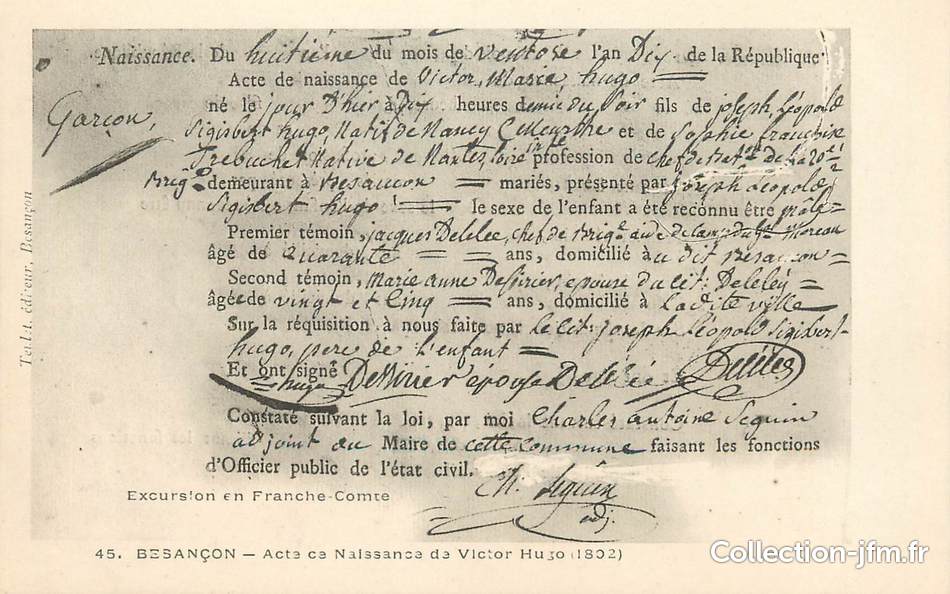 Naissance. Du huitieme du mois de ventose l'an Dix de la République
Acte de naissance de Victor, Marie hugo
né le jour D'hier à Dix heures demie du soir fils de joseph, Léopold
Garçon,
Sigisbert hugo, Natif de Nancy (Meurthe et de Sophie francoise
Trebuchet Native de Nantes, Loire infre profession de chef de Bat.on de La 20e
Brig.e demeurant à Besancon mariés, présenté par joseph Leopold
Sigisbert hugo le sexe de l'enfant a été reconnu être mâle
Premier témoin, jacques Delelee, chef de Brig.e aide de camp du G.al Moreau
âgé de quarante ans, domicilié à u dit Besancon
Second témoin, Marie anne Dessirier, epouse du cit: Delelée
âgée de vingt et Cinq ans, domicilié à Ladite ville
Sur la réquisition à nous faite par le cit: joseph Léopold Sigisbert
hugo, pere de l'enfant
Et ont signé hugo Dessirier epouse Delelée Delelee
Constaté suivant la loi, par moi Charles antoine Seguin
adjoint au Maire de cette commune faisant les fonctions
d'Officier public de l'état civil.
Ch. Seguin
adj.
Teulet, éditeur, Besançon
Excursion en Franche-Comte
45. BESANÇON — Acte de Naissance de Victor Hugo (1802)
Collection-jfm.fr